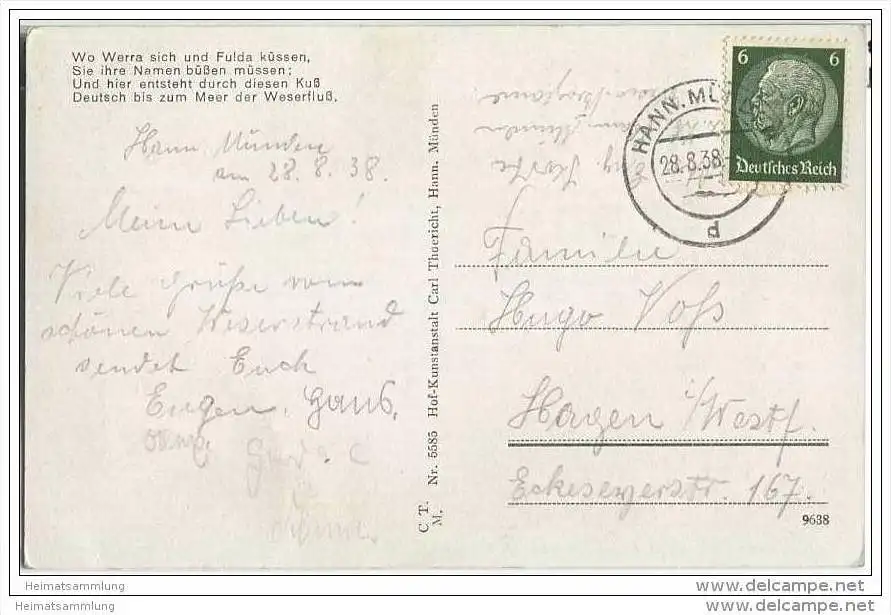 Wo Werra sich und Fulda küssen,
Sie ihre Namen büßen müssen;
Und hier entsteht durch diesen Kuß
Deutsch bis zum Meer der Weserfluß.
Hann Münden
am 28. 8. 38.
Meine Lieben!
Viele Grüße vom
schönen Weserstrand
sendet Euch
Eugen,
C. T. M. Nr. 5585 Hof-Kunstanstalt Carl Thoericht, Hann. Münden
HANN. MÜ
28.8.38
d
6 6
Deutsches Reich
Familie
Hugo Voß
Hagen i/Westf.
Eckeseyerstr. 167.
9638
Heimatsammlung
Heimatsammlung
www.delcampe.net
www.delcampe.net